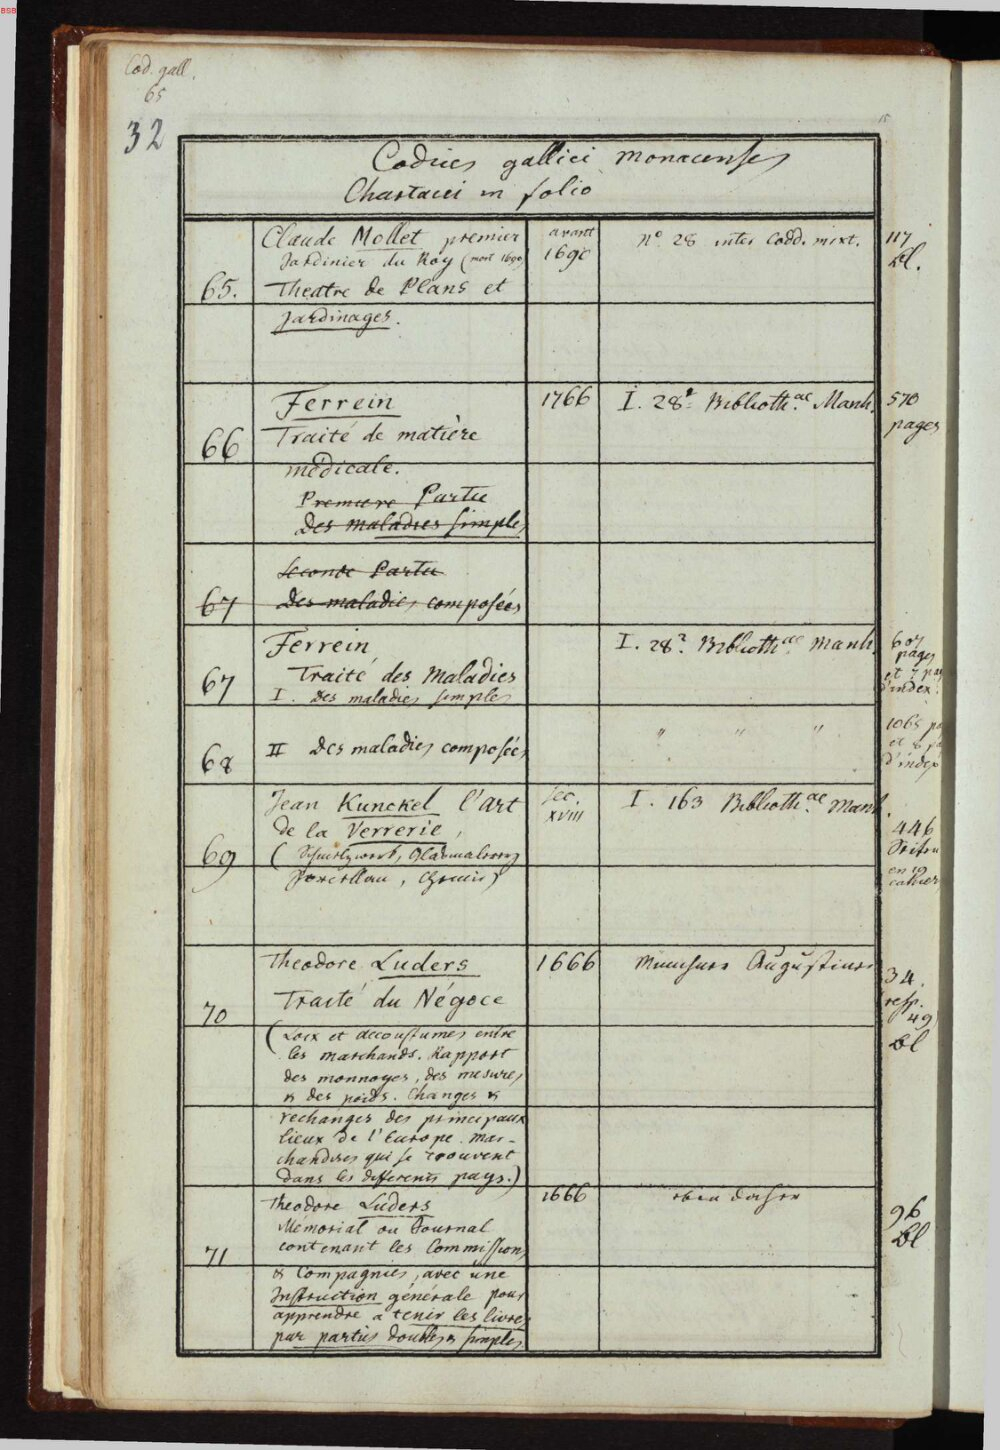 BSB
Cod. gall.
65
32
Codices gallici monacenses
Chartacei in folio
Claude Mollet premier
Jardinier du Roy (mort 1690)
65. Theatre de Plans et
Jardinages.
avant
1690
nº 28 inter Codd. mixt.
117
Bl.
Ferrein
66 Traité de matière
médicale.
Premiere Partie
Des maladies simples
1766
I. 28¹ Biblioth.ae Manh.
570
pages
Seconde Partie
67 Des maladies composées
Ferrein
67 Traité des Maladies
I. Des maladies simples
I. 28² Biblioth.ae Manh.
607
pages
et 7 pag
d'index.
68 II Des maladies composées
" " "
1065 pa
et 8 pa
d'index
Jean Kunckel l'art
de la Verrerie,
69 (Schmelzwerk, Glasmalerey
Porcellan,
sec.
XVIII
I. 163 Biblioth.ae Manh.
446
Seiten
en 19
cahiers
Theodore Luders
70 Traité du Négoce
(Loix et accoustumes entre
les marchands. Rapport
des monnoyes, des mesures
& des poids. Changes &
rechanges des principaux
lieux de l'Europe. Mar-
chandises qui se trouvent
dans les differents pays.)
1666
Münchner Augustiner
34.
resp.
49
Bl
Theodore Luders
Memorial ou Journal
71 contenant les Commissions
& Compagnies, avec une
Instruction générale pour
apprendre a tenir les livres
par parties doubles & simples
1666
eben daher
96
Bl